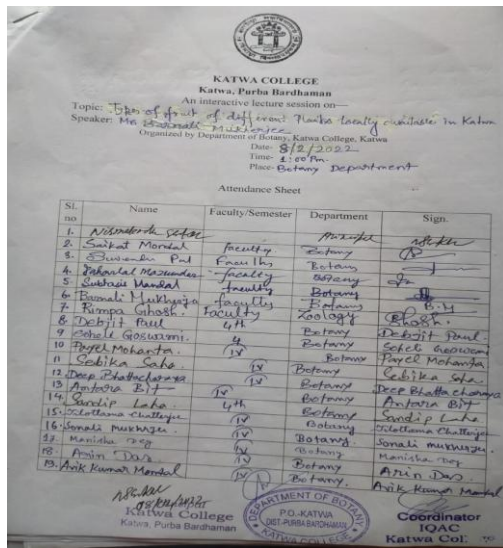 KATWA COLLEGE
Katwa, Purba Bardhaman
An interactive lecture session on—
Topic: Types of fruit of different Plants locally available in Katwa
Speaker: Ms Barnali Mukherjee
Organized by Department of Botany, Katwa College, Katwa
Date- 8/2/2022
Time- 1:00 Pm.
Place- Botany Department
Attendance Sheet
Sl. no Name Faculty/Semester Department Sign.
1.
2. Saikat Mondal faculty Botany
3. Pal Faculty Botany
4. faculty Botany
5. Subhasis Mandal faculty Botany
6. Barnali Mukherjee faculty Botany B.M
7. Rimpa Ghosh. Faculty Zoology Ghosh.
8. Debjit Paul 4th Botany Debjit Paul.
9. Soheli Goswami. 4 Botany Soheli Goswami
10. Payel Mohanta. IV Botany Payel Mohanta.
11. Sebika Saha. IV Botany Sebika Saha
12. Deep Bhattacharaya IV Botany Deep Bhattacharaya
13. Antara Bit IV Botany Antara Bit
14. Sandip Laha. 4th Botany Sandip Laha
15. Tilottama Chatterjee IV Botany Tilottama Chatterjee
16. Sonali Mukherjee. IV Botany. Sonali Mukherjee.
17. Manisha Dey IV Botany Manisha Dey
18. Arin Das IV Botany Arin Das
19. Avik Kumar Mondal IV Botany. Avik Kumar Mondal
Katwa College
Katwa, Purba Bardhaman
DEPARTMENT OF BOTANY
P.O.-KATWA
DIST.-PURBA BARDHAMAN
KATWA COLLEGE
Coordinator
IQAC
Katwa Col